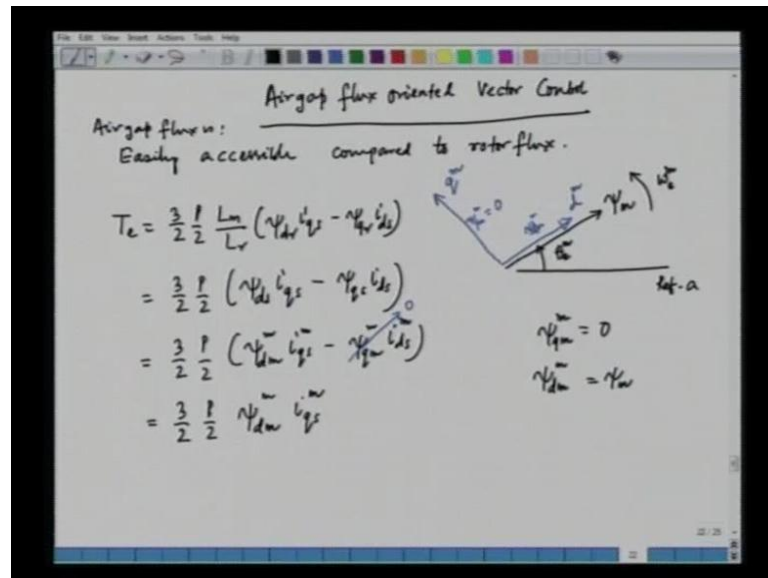 File Edit View Insert Actions Tools Help
Airgap flux oriented Vector Control
Airgap flux is:
Easily accessible compared to rotor flux.
Te = 3/2 P/2 Lm/Lr (ψdr iqs − ψqr ids)
= 3/2 P/2 (ψds iqs − ψqs ids)
= 3/2 P/2 (ψdm^m iqs^m − ψqm^m ids^m) 0
= 3/2 P/2 ψdm^m iqs^m
q^m
= 0
ψm
ref-a
ψqm^m = 0
ψdm^m = ψm
22 / 25
22